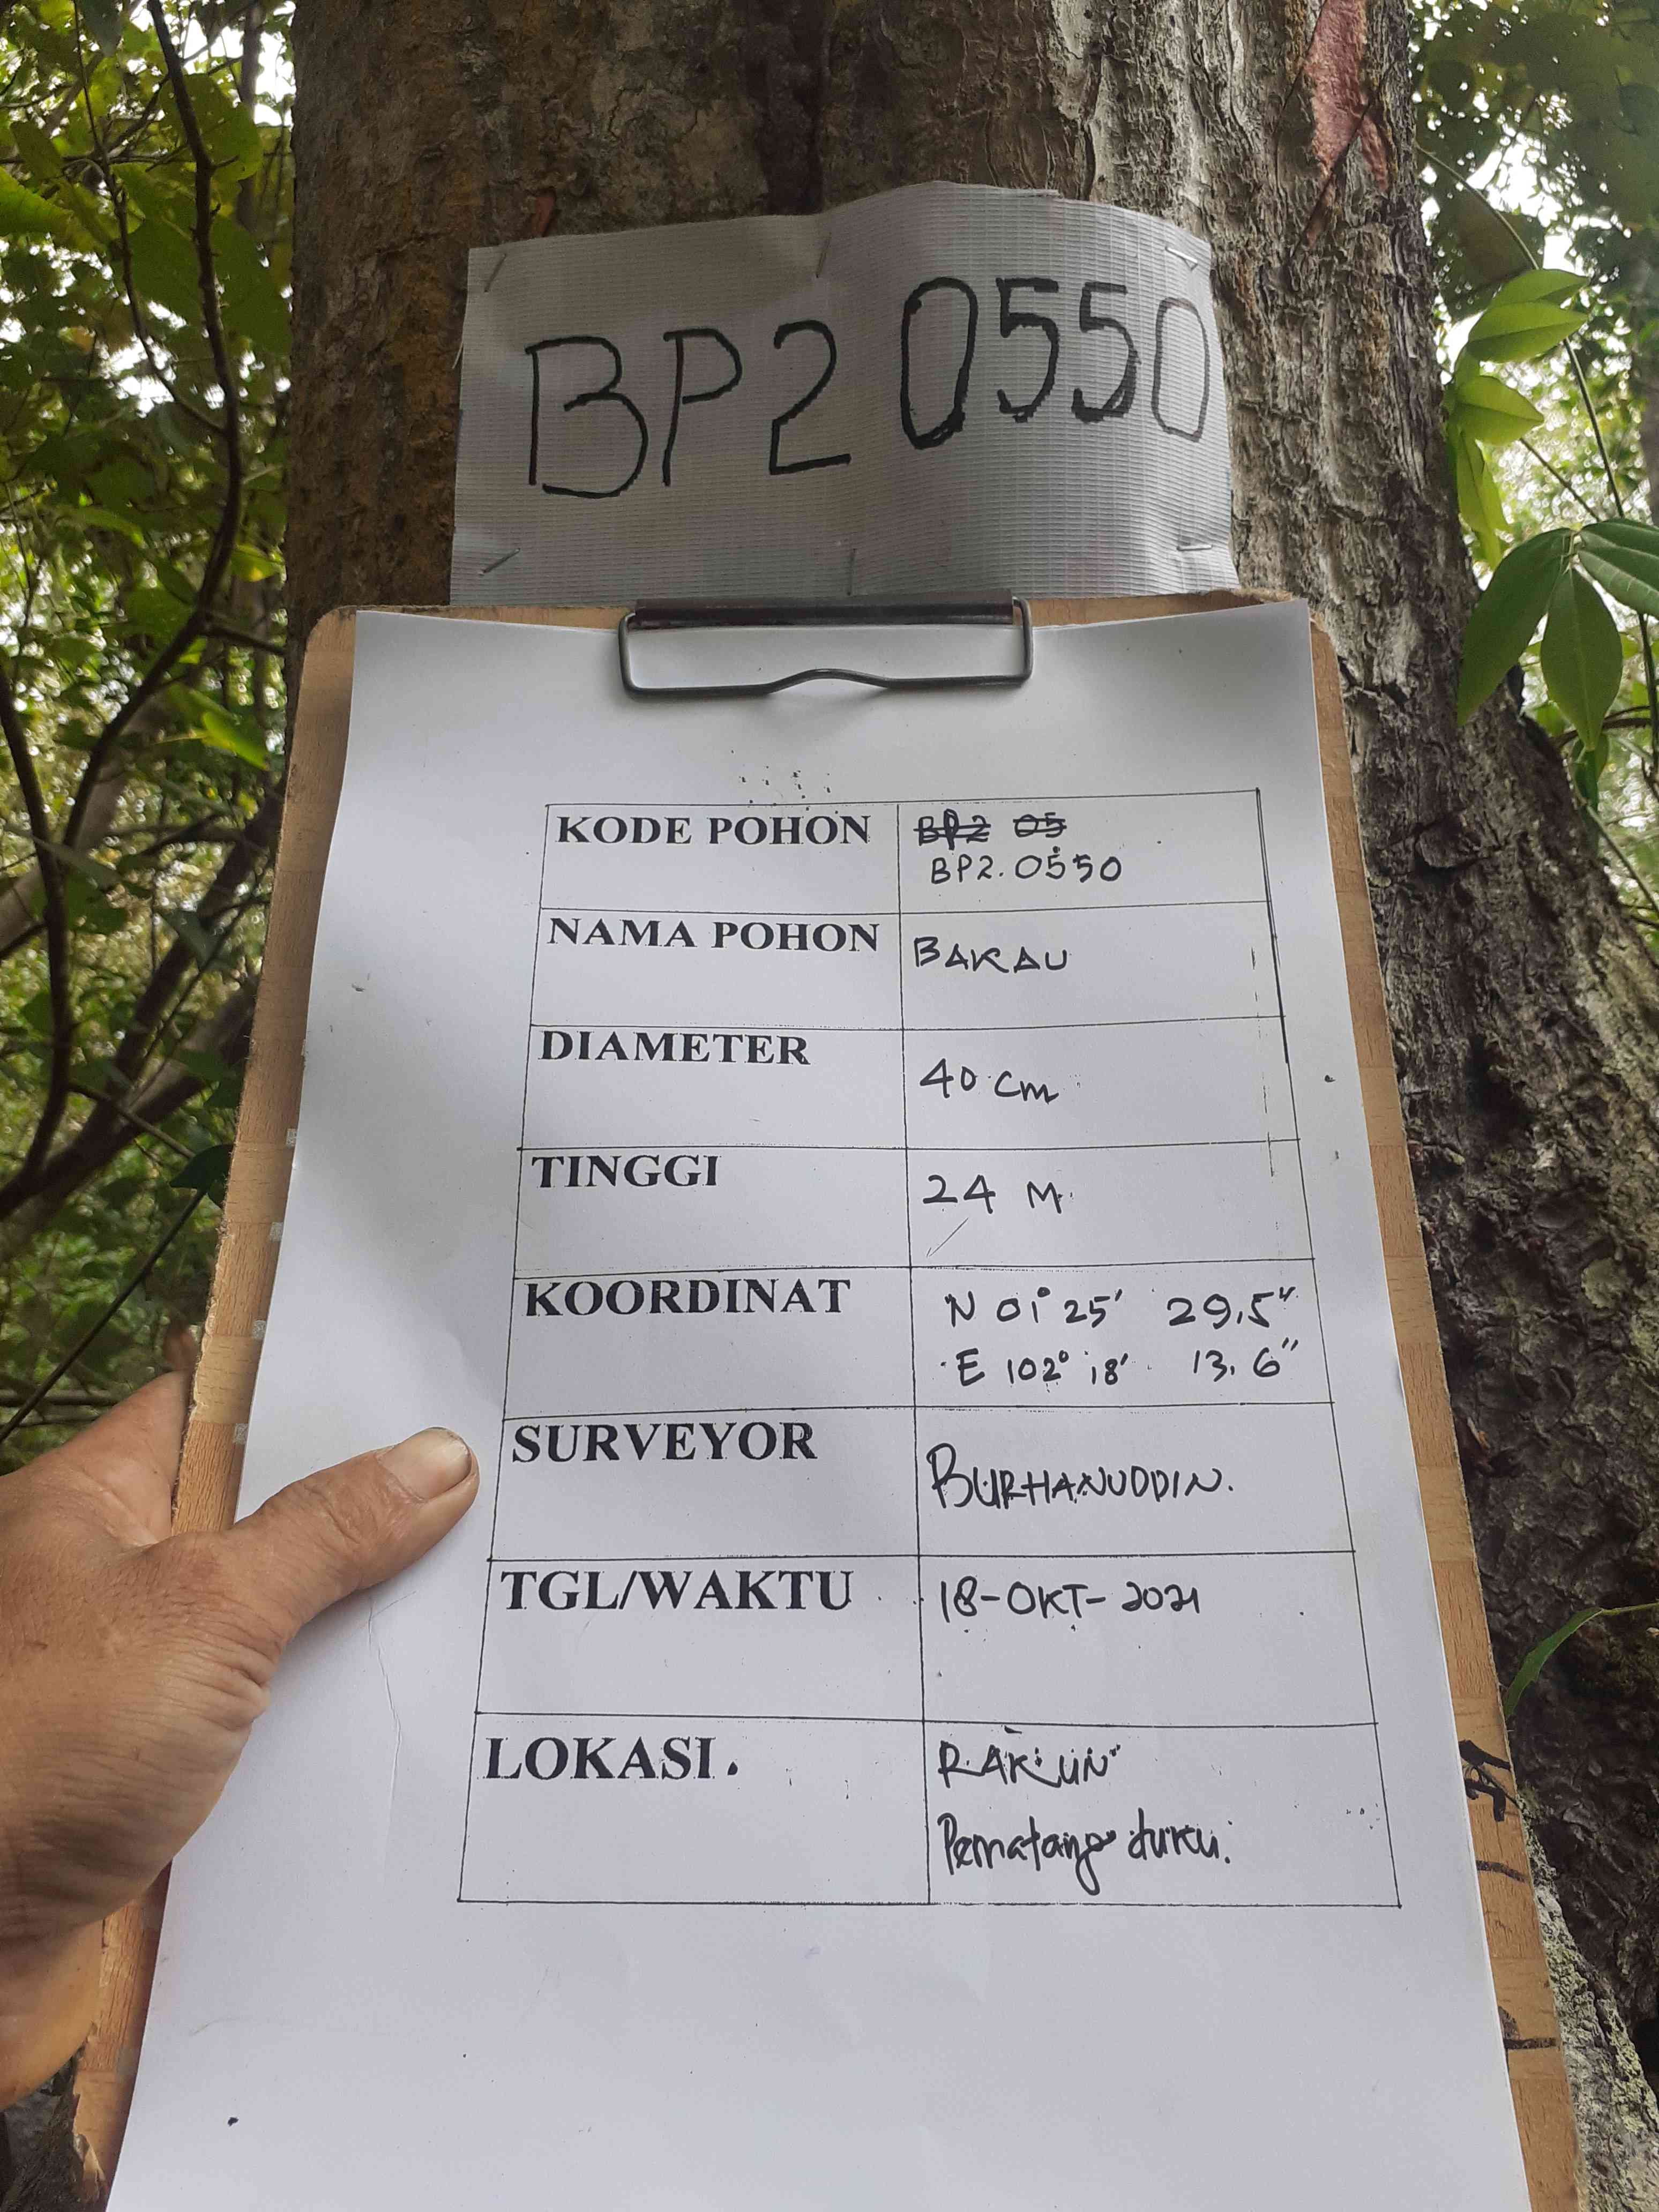 BP2 0550
KODE POHON
BP2 05
BP2.0550
NAMA POHON
BAKAU
DIAMETER
40 cm
TINGGI
24 M
KOORDINAT
N 01° 25' 29,5"
E 102° 18' 13.6"
SURVEYOR
BURHANUDDIN.
TGL/WAKTU
18-OKT-2021
LOKASI.
RAKUN
Pematang duku.